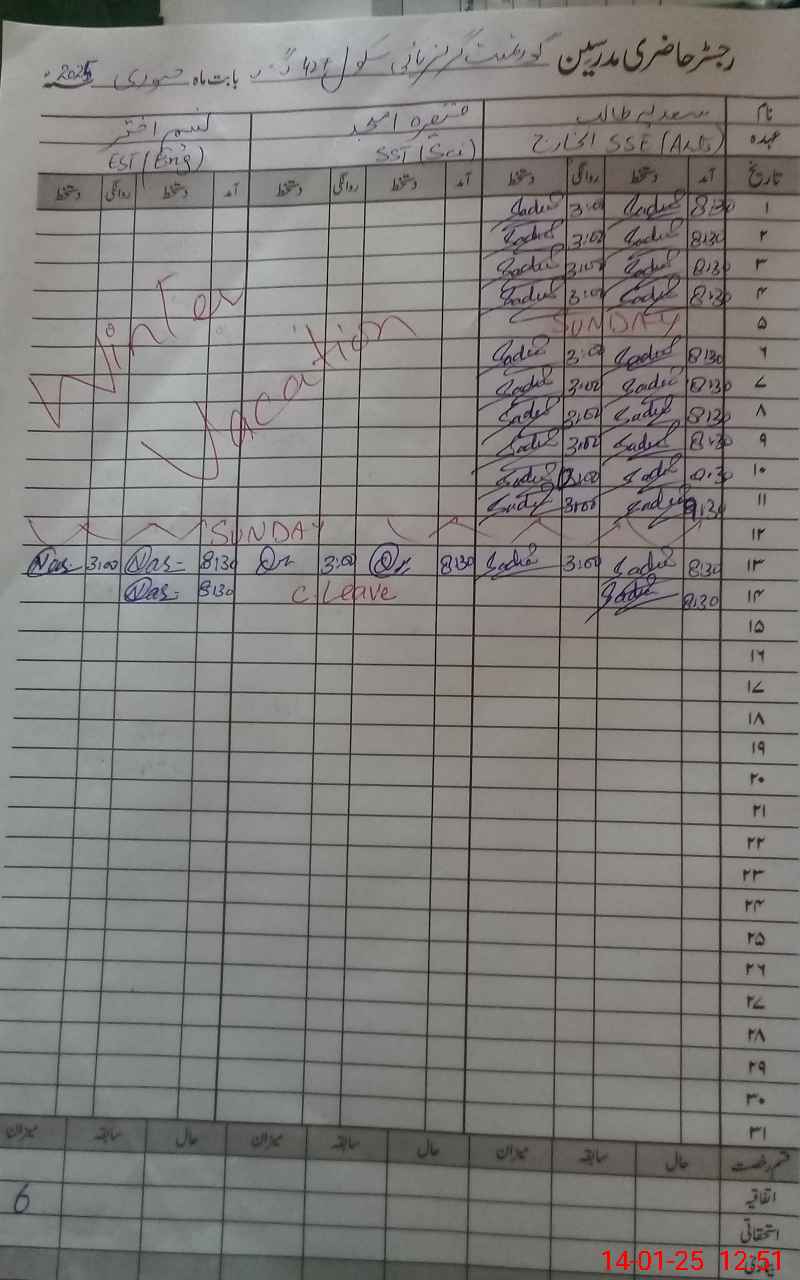 رجسٹر حاضری مدرسین گورنمنٹ گرلز ہائی سکول 427 گ ب بابت ماہ جنوری 2025
نام سعدیہ طالب امجد نسیم اختر
عہدہ SSE (Arts) انچارج SST (Sci) EST (Eng)
تاریخ آمد دستخط روانگی دستخط آمد دستخط روانگی دستخط آمد دستخط روانگی دستخط
۱ 8:30 Sadia 3:00 Sadia
۲ 8:30 Sadia 3:00 Sadia
۳ 8:30 Sadia 3:00 Sadia
۴ 8:30 Sadia 3:00 Sadia
۵ SUNDAY
۶ 8:30 Sadia 3:00 Sadia
۷ 8:30 Sadia 3:00 Sadia
۸ 8:30 Sadia 3:00 Sadia
۹ 8:30 Sadia 3:00 Sadia
۱۰ 8:30 Sadia 3:00 Sadia
۱۱ 8:30 Sadia 3:00 Sadia
Winter
Vacation
۱۲ SUNDAY
۱۳ 8:30 Sadia 3:00 Sadia 8:30 3:00 8:30 Nas- 3:00 Nas-
۱۴ 8:30 Sadia C.Leave 8:30 Nas-
۱۵
۱۶
۱۷
۱۸
۱۹
۲۰
۲۱
۲۲
۲۳
۲۴
۲۵
۲۶
۲۷
۲۸
۲۹
۳۰
۳۱
قسم رخصت حال سابقہ میزان حال سابقہ میزان حال سابقہ میزان
اتفاقیہ 6
استحقاقی
14-01-25 12:51